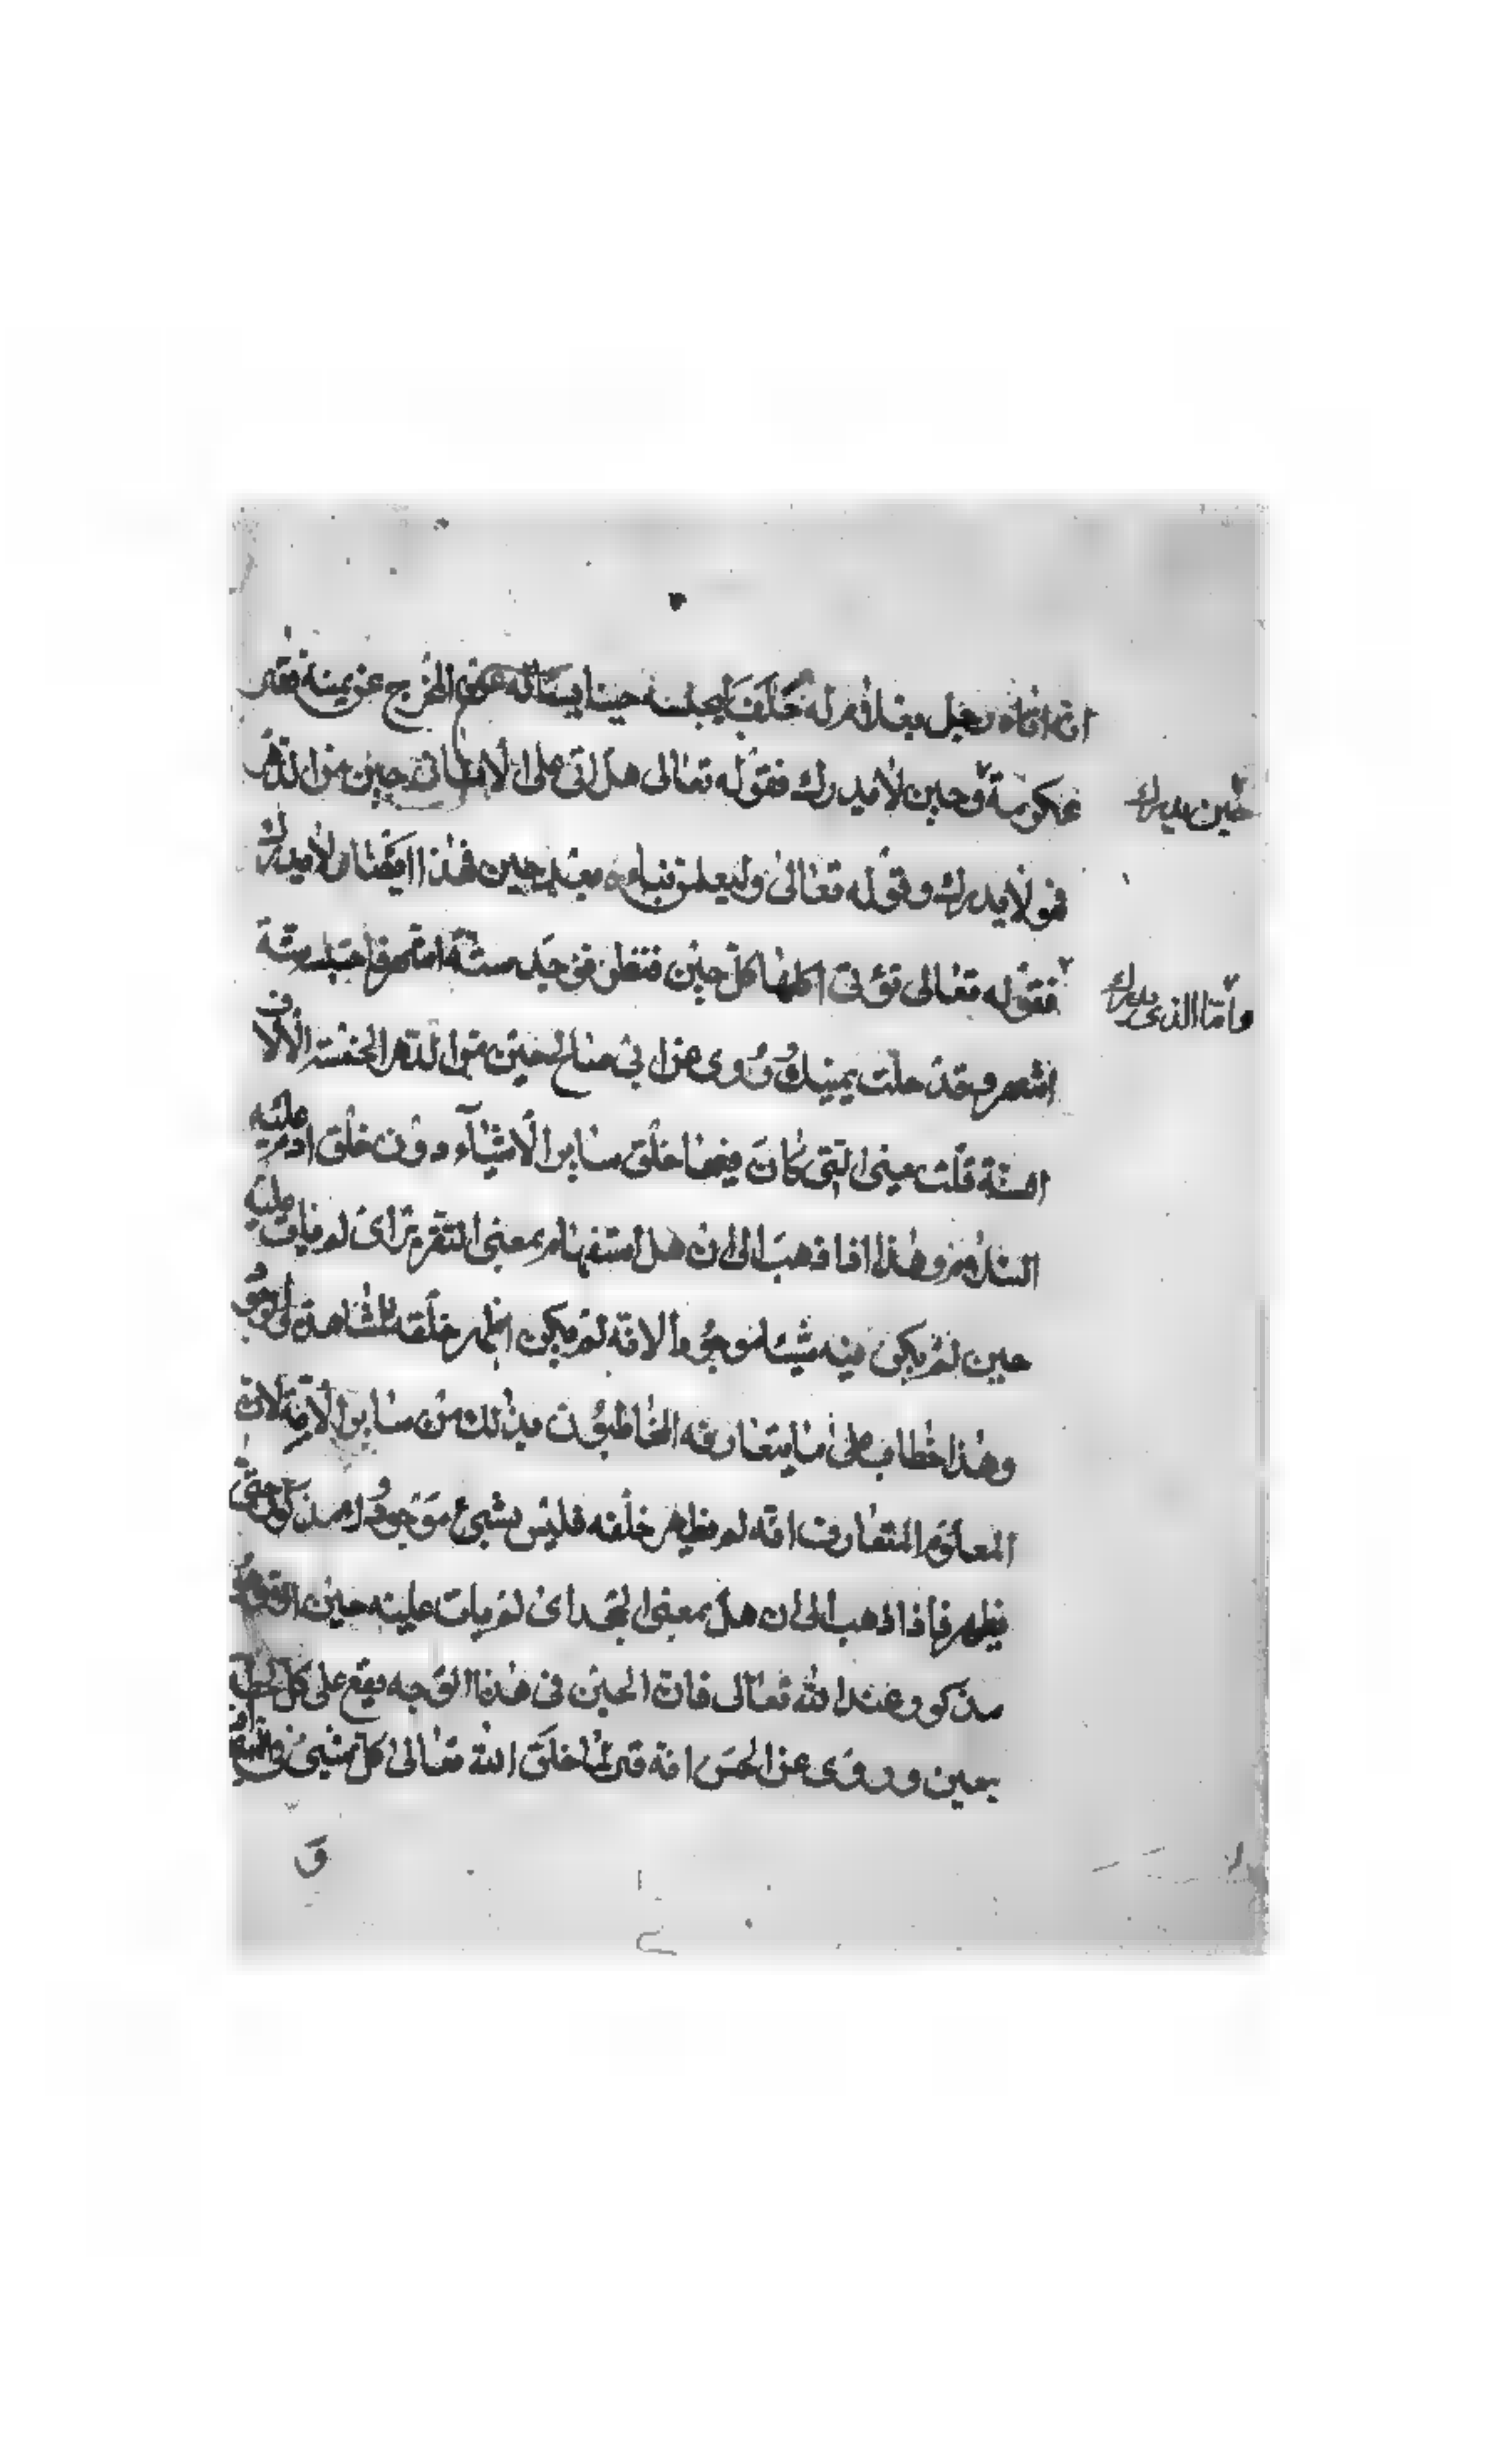 انه اتاه رجل بغلام له حلف ليجلسنه حينا يسئاله عن المخرج عن يمينه فقر
حين يدرك
عكرمة وحين لا يدرك فقوله تعالى هل اتى على الانسان حين من الدهر
فهو لا يدرك وقوله تعالى ولتعلمن نباءه بعد حين فهذا ايضا لا يدرك
واما الذى يدرك
فقوله تعالى تؤتى اكلها كل حين فنظر فوجد ستة اشهر فاحبسه ستة
اشهر وقد حلت يمينك وروى عن ابى صالح حين من الدهر الخمسة الالاف
السنة قلت يعنى التى كان فيها خلق ساير الاشياء دون خلق ادم عليه
السلام وهذا اذا ذهب الى ان هل استفهام بمعنى التقرير اى لم يات عليه
حين لم يكن فيه شيئا موجودا لانه لم يكن اظهر خلقه للمشاهدة
وهذا خطاب على ما يتعارفه المخاطبون بذلك من ساير الامة لان
المعلوم المتعارف انه لم يظهر خلقه فليس بشىء موجودا مذكورا حتى
يظهر فاذا ذهب الى ان هل بمعنى الجحد اى لم يات عليه حين الا وهو
مذكور عند الله تعالى فان الحين فى هذا الوجه يقع على كل
بعين وروى عن الحسن انه قر لما خلق الله تعالى كل شىء
و